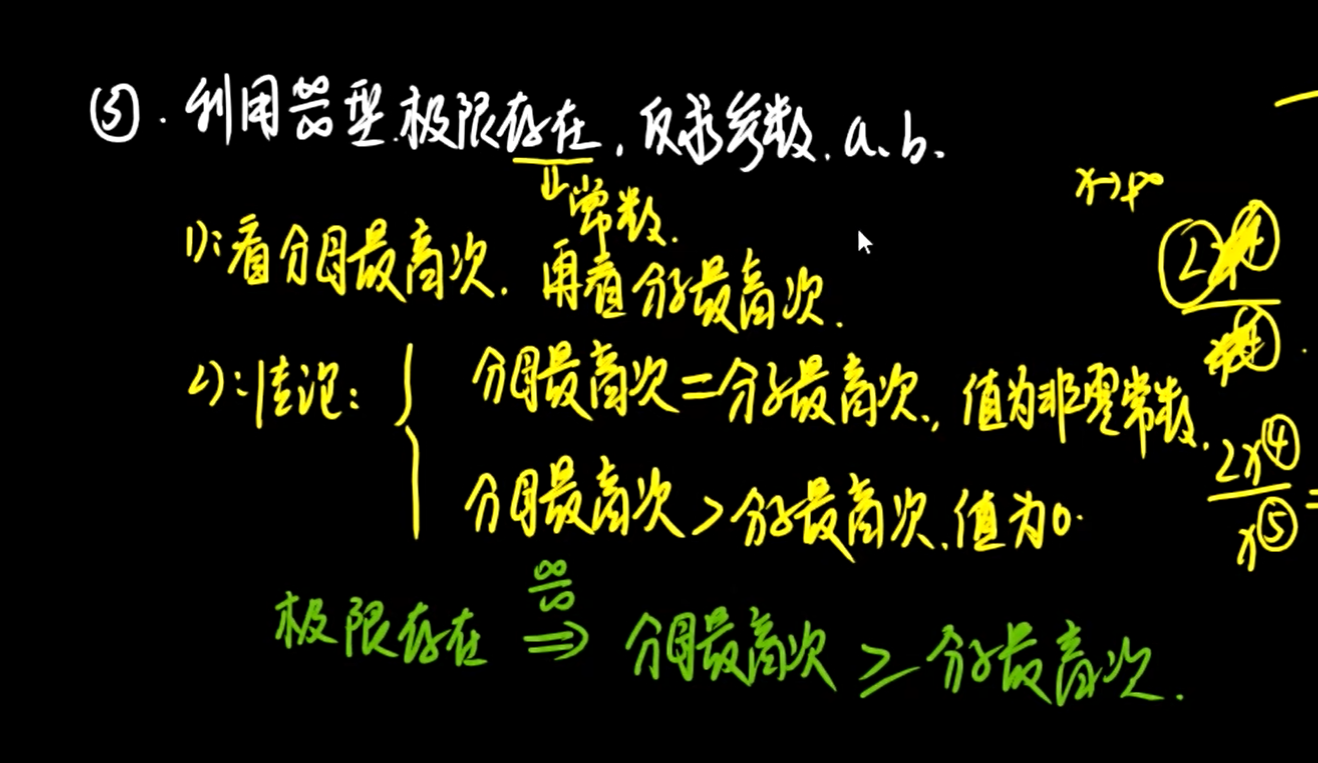 ⑤. 利用 ∞/∞ 型.极限存在, 反求参数. a、b.
⇓常数.
x→+∞
1):看分母最高次. 再看分子最高次.
2):结论: { 分母最高次=分子最高次, 值为非零常数.
分母最高次>分子最高次, 值为0.
2x④/x⑤ =
极限存在 ∞/∞ ⇒ 分母最高次 ≥ 分子最高次.